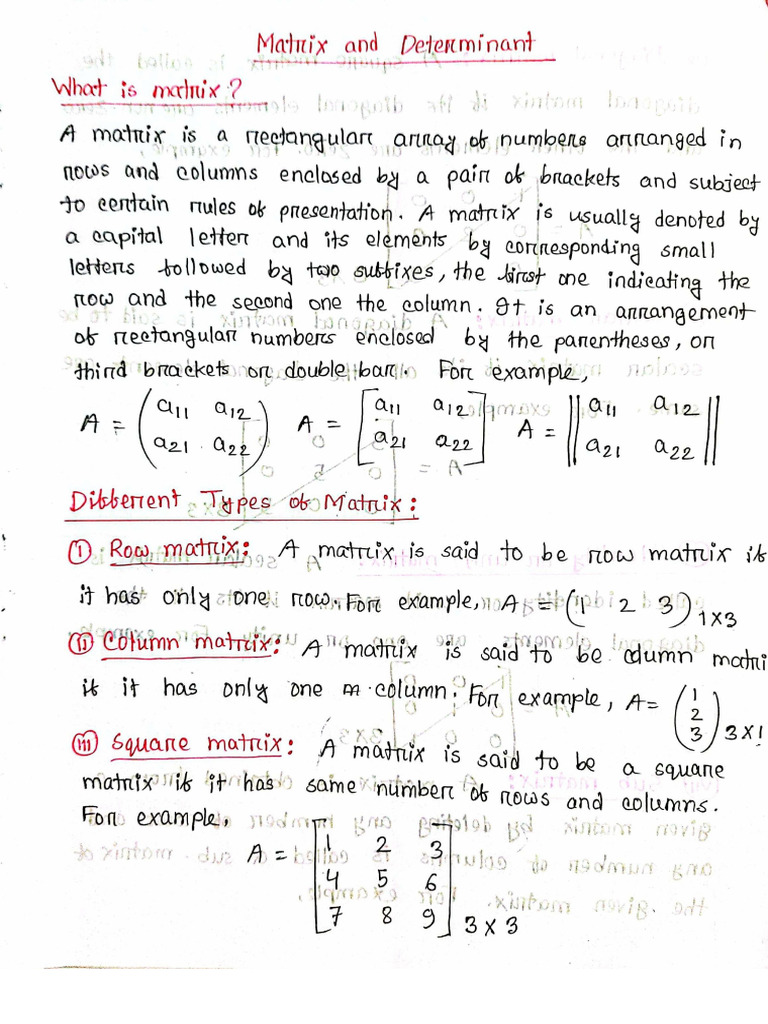 Matrix and Determinant
What is matrix?
A matrix is a rectangular array of numbers arranged in
rows and columns enclosed by a pair of brackets and subject
to certain rules of presentation. A matrix is usually denoted by
a capital letter and its elements by corresponding small
letters followed by two suffixes, the first one indicating the
row and the second one the column. It is an arrangement
of rectangular numbers enclosed by the parentheses, or
third brackets or double bar. For example,
A = (a11 a12 A = [a11 a12 A = ||a11 a12||
a21 a22) a21 a22] a21 a22
Different Types of Matrix:
(i) Row matrix: A matrix is said to be row matrix if
it has only one row. For example, A = (1 2 3) 1x3
(ii) Column matrix: A matrix is said to be column matri
if it has only one column. For example, A = (1 2 3) 3x1
(iii) Square matrix: A matrix is said to be a square
matrix if it has same number of rows and columns.
For example,
A = [1 2 3
4 5 6
7 8 9] 3 x 3